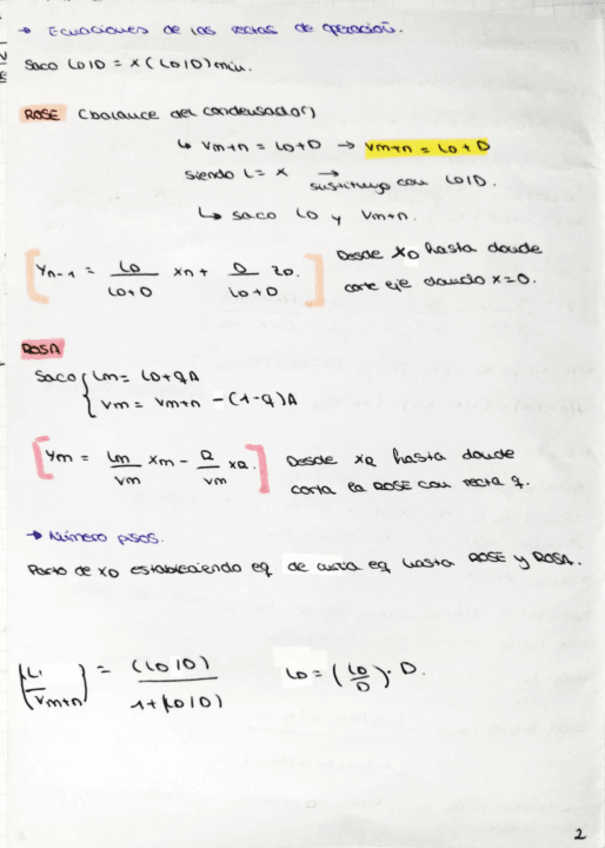 → Ecuaciones de las rectas de operación.
Saco Lo/D = x (Lo/D) min.
ROSE (balance del condensador)
↳ Vm+n = Lo+D → Vm+n = Lo + D
siendo L = x → sustituyo con Lo/D.
↳ saco Lo y Vm+n.
[ Yn-1 = Lo/(Lo+D) xn + D/(Lo+D) zo. ] Desde xD hasta donde
corte eje cuando x=0.
ROSA
Saco { Lm = Lo+qA
{ Vm = Vm+n - (1-q)A
[ Ym = Lm/Vm xm - R/Vm xR. ] Desde xR hasta donde
corta la ROSE con recta q.
→ Número pisos.
Parto de xD estableciendo eq de curva eq hasta ROSE y ROSA.
(L/Vm+n) = (Lo/D)/(1+(Lo/D)) Lo = (Lo/D) · D.
2